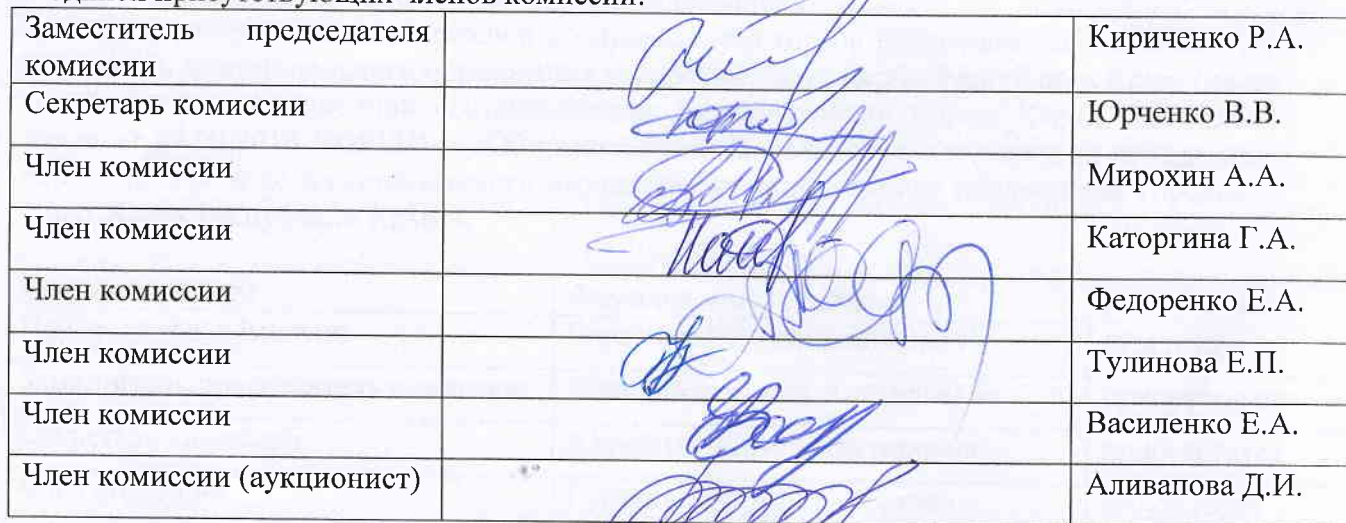 присутствующих членов комиссии:
Заместитель председателя Кириченко Р.А.
комиссии
Секретарь комиссии Юрченко В.В.
Член комиссии Мирохин А.А.
Член комиссии Каторгина Г.А.
Член комиссии Федоренко Е.А.
Член комиссии Тулинова Е.П.
Член комиссии Василенко Е.А.
Член комиссии (аукционист) Аливапова Д.И.